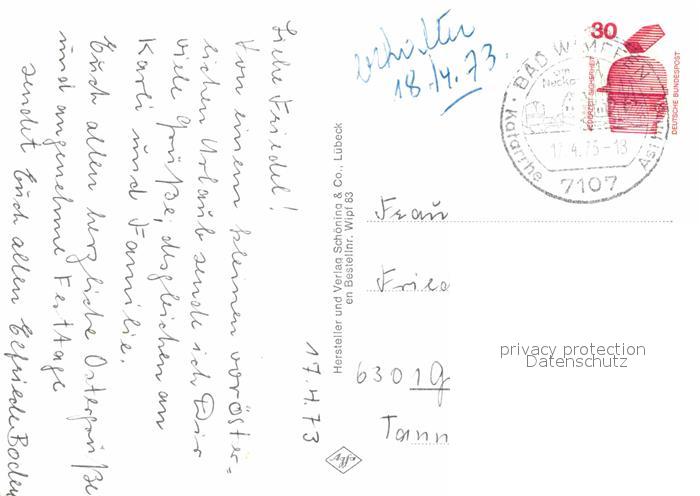 Liebe Friedel!
Von einem kleinen voröster-
lichen Urlaub sende ich Dir
viele Grüße, desgleichen an
Karli und Familie.
Euch allen herzliche Ostergrüße
und angenehme Festtage
sendet Euch allen Elfriede Boden
17.4.73
Hersteller und Verlag Schöning & Co., Lübeck
en Bestellnr. Wipf 83
erhalten
18.4.73.
30
JEDERZEIT SICHERHEIT
DEUTSCHE BUNDESPOST
BAD WIMPFEN
am
Neckar
Katarrhe
Asthma
17.4.73-13
7107
Frau
Fried
6301g
Tann
privacy protection
Datenschutz